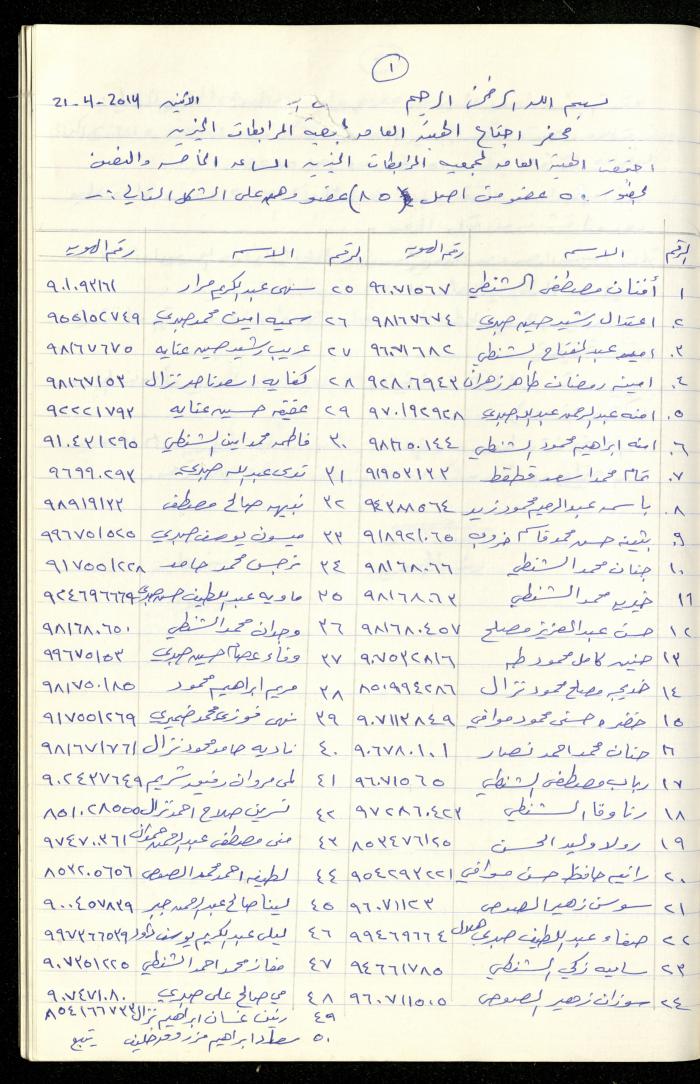 ١
بسم الله الرحمن الرحيم الاثنين 21-4-2014
محضر اجتماع الهيئة العامة لجمعية المرابطات الخيرية
اجتمعت الهيئة العامة لجمعية المرابطات الخيرية الساعة الخامسة والنصف
بحضور ٥٠ عضو من اصل (٨٥) عضو وهم على الشكل التالي :-
الرقم الاسم رقم الهوية الرقم الاسم رقم الهوية
١ أفنان مصطفى الشنطي ٩٦٠٧١٥٦٧ ٢٥ سهى عبد الكريم مرار ٩٠١٠٩٢١٦١
٢. اعتدال رشيد حسين صبري ٩٨١٦٧٦٧٤ ٢٦ سميه امين محمد صبري ٩٥٥١٥٢٧٤٩
٣. اميمه عبد الفتاح الشنطي ٩٦٠٧١٦٨٢ ٢٧ عريب رشيد حسين عنايه ٩٨١٦٧٦٧٥
٤. امينه رمضان طاهر زهران ٩٢٨٠٦٩٤٣ ٢٨ كفايه اسعد ناصر نزال ٩٨١٦٧١٥٣
٥. امنه عبد الرحمن عبد الله صبري ٩٧٠١٩٢٩٢٨ ٢٩ عفيفه حسين عنايه ٩٢٢٢١٧٩٢
٦. امنه ابراهيم محمود الشنطي ٩٨١٦٥٠١٤٤ ٣٠ فاطمه محمد امين الشنطي ٩١٠٤٣١٢٩٥
٧. تمام محمد اسعد قطقط ٩١٩٥٣١٢٣ ٣١ ندى عبد الله صبري ٩٦٩٩٠٢٩٣
٨. باسمه عبد الرحيم محمود زيد ٩٤٣٨٨٥٦٤ ٣٢ نبيهه صالح مصطفى ٩٨٩١٩١٢٢
٩. بثينه حسن محمد قاسم خروب ٩١٨٩٢١٠٦٥ ٣٣ ميسون يوسف صبري ٩٩٦٧٥١٥٢٥
١٠. جنان محمد الشنطي ٩٨١٦٨٠٦٦ ٣٤ نرجس محمد حامد ٩١٧٥٥١٢٢٨
١١ خيريه محمد الشنطي ٩٨١٦٨٠٦٣ ٣٥ ماويه عبد اللطيف حسن صبري ٩٢٤٦٩٦٦٦٩
١٢ حسن عبد العزيز مصلح ٩٨١٦٨٠٤٥٧ ٣٦ وجدان محمد الشنطي ٩٨١٦٨٠٦٥٠
١٣ حنينه كامل محمود طه ٩٠٧٥٣٢٨١٦ ٣٧ وفاء عصام حسين صبري ٩٩٦٧٥١٥٣
١٤ خديجه مصلح محمود نزال ٨٥٠٩٩٤٢٨٦ ٣٨ مريم ابراهيم محمود ٩٨١٧٥٠١٨٥
١٥ خضره حسني محمود موافي ٩٠٧١١٣٨٤٩ ٣٩ نهى فوزي محمد ضميري ٩١٧٥٥١٢٦٩
١٦ حنان محمد احمد نصار ٩٠٦٧٨٠١٠١ ٤٠ ناديه حامد محمود نزال ٩٨١٦٧١٧٦١
١٧ رباب مصطفى الشنطي ٩٦٠٧١٥٦٥ ٤١ لمى مروان رفيق شريم ٩٠٢٤٣٧٦٤٩
١٨ رنا وفا الشنطي ٩٧٢٨٦٠٤٢٣ ٤٢ نسرين صلاح احمد نزال ٨٥١٠٢٨٥٥٥
١٩ رولا وليد الحسن ٨٥٣٤٧٦١٢٥ ٤٣ منى مصطفى عبد الرحمن حمدان ٩٧٤٧٠٣٦١
٢٠ رانيه حافظ حسن موافي ٩٥٤٢٩٣٢٢١ ٤٤ لطيفه احمد محمد الصوص ٨٥٣٢٠٥٦٥٦
٢١ سوسن زهير الصوص ٩٦٠٧١١٢٣ ٤٥ لينا صالح عبد الرحمن جبر ٩٠٠٤٥٧٨٣٩
٢٢ صفاء عبد اللطيف صبري هلال ٩٩٤٦٩٦٦٤ ٤٦ ليلى عبد الكريم يوسف داود ٩٩٧٣٦٦٥٣٩
٢٣ ساميه زكي الشنطي ٩٤٦٦١٧٨٥ ٤٧ مفاز محمد احمد الشنطي ٩٠٧٣٥١٢٢٥
٢٤ سوزان زهير الصوص ٩٦٠٧١١٥١٥ ٤٨ مي صالح علي صبري ٩٠٧٤٧١٠٨٠
٤٩ رنين غسان ابراهيم نزال ٨٥٤١٦٦٧٣٣
٥٠ ابراهيم يتبع